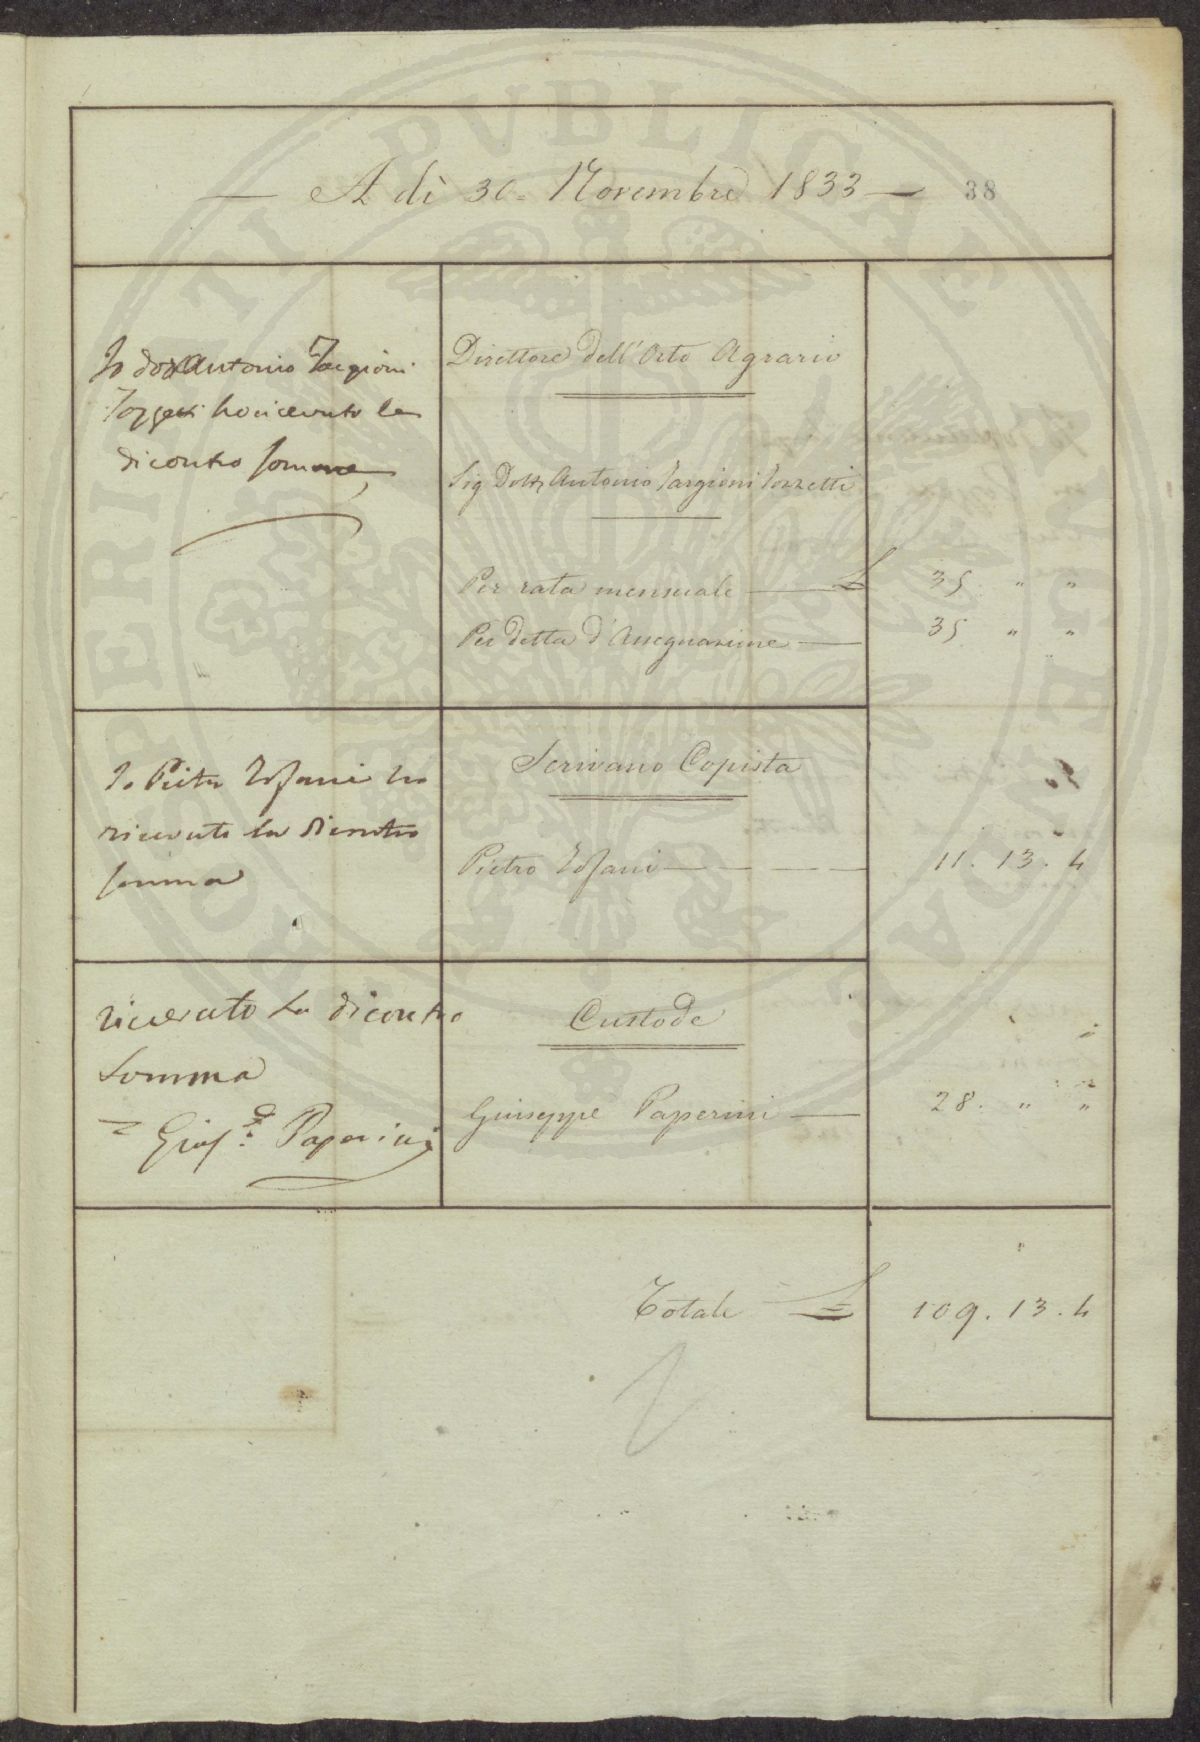 — A dì 30. Novembre 1833 — 38
Io dott Antonio Targioni
Tozzetti ho ricevuto la
di contro somma
Direttore dell'Orto Agrario
Sig Dott Antonio Targioni Tozzetti
Per rata mensuale — £ 35 " "
Per detta d'Assegnazione — 35 " "
Io Pietro
ricevuto la dicontro
somma
Scrivano Copista
Pietro — 11. 13. 4
ricevuto la dicontro
Somma
= Gius.e Paperini
Custode
Giuseppe Paperini — 28. " "
Totale £ 109. 13. 4
PERITI PVBLICAE